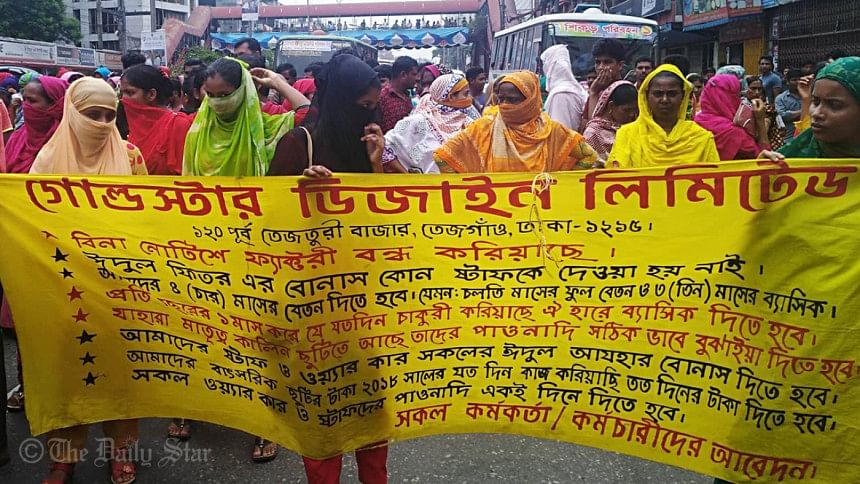 শিকড় পরিবহন
গোল্ডস্টার ডিজাইন লিমিটেড
১২০ পূর্ব তেজতুরী বাজার, তেজগাঁও, ঢাকা-১২১৫।
বিনা নোটিশে ফ্যাক্টরী বন্ধ করিয়াছে।
ঈদুল ফিতর এর বোনাস কোন স্টাফকে দেওয়া হয় নাই।
৪ (চার) মাসের বেতন দিতে হবে। যেমন: চলতি মাসের ফুল বেতন ও ৩ (তিন) মাসের ব্যাসিক।
প্রতি বছরের ১ মাস করে যে যতদিন চাকুরী করিয়াছে ঐ হারে ব্যাসিক দিতে হবে।
যাহারা মাতৃত্ব কালিন ছুটিতে আছে তাদের পাওনাদি সঠিক ভাবে বুঝাইয়া দিতে হবে।
আমাদের স্টাফ ও ওয়্যার কার সকলের ঈদুল আযহার বোনাস দিতে হবে।
আমাদের বাৎসরিক ছুটির টাকা ২০১৮ সালের যত দিন কাজ করিয়াছি তত দিনের টাকা দিতে হবে।
সকল ওয়্যার কার ও স্টাফদের পাওনাদি একই দিনে দিতে হবে।
সকল কর্মকর্তা / কর্মচারীদের আবেদন।
© The Daily Star